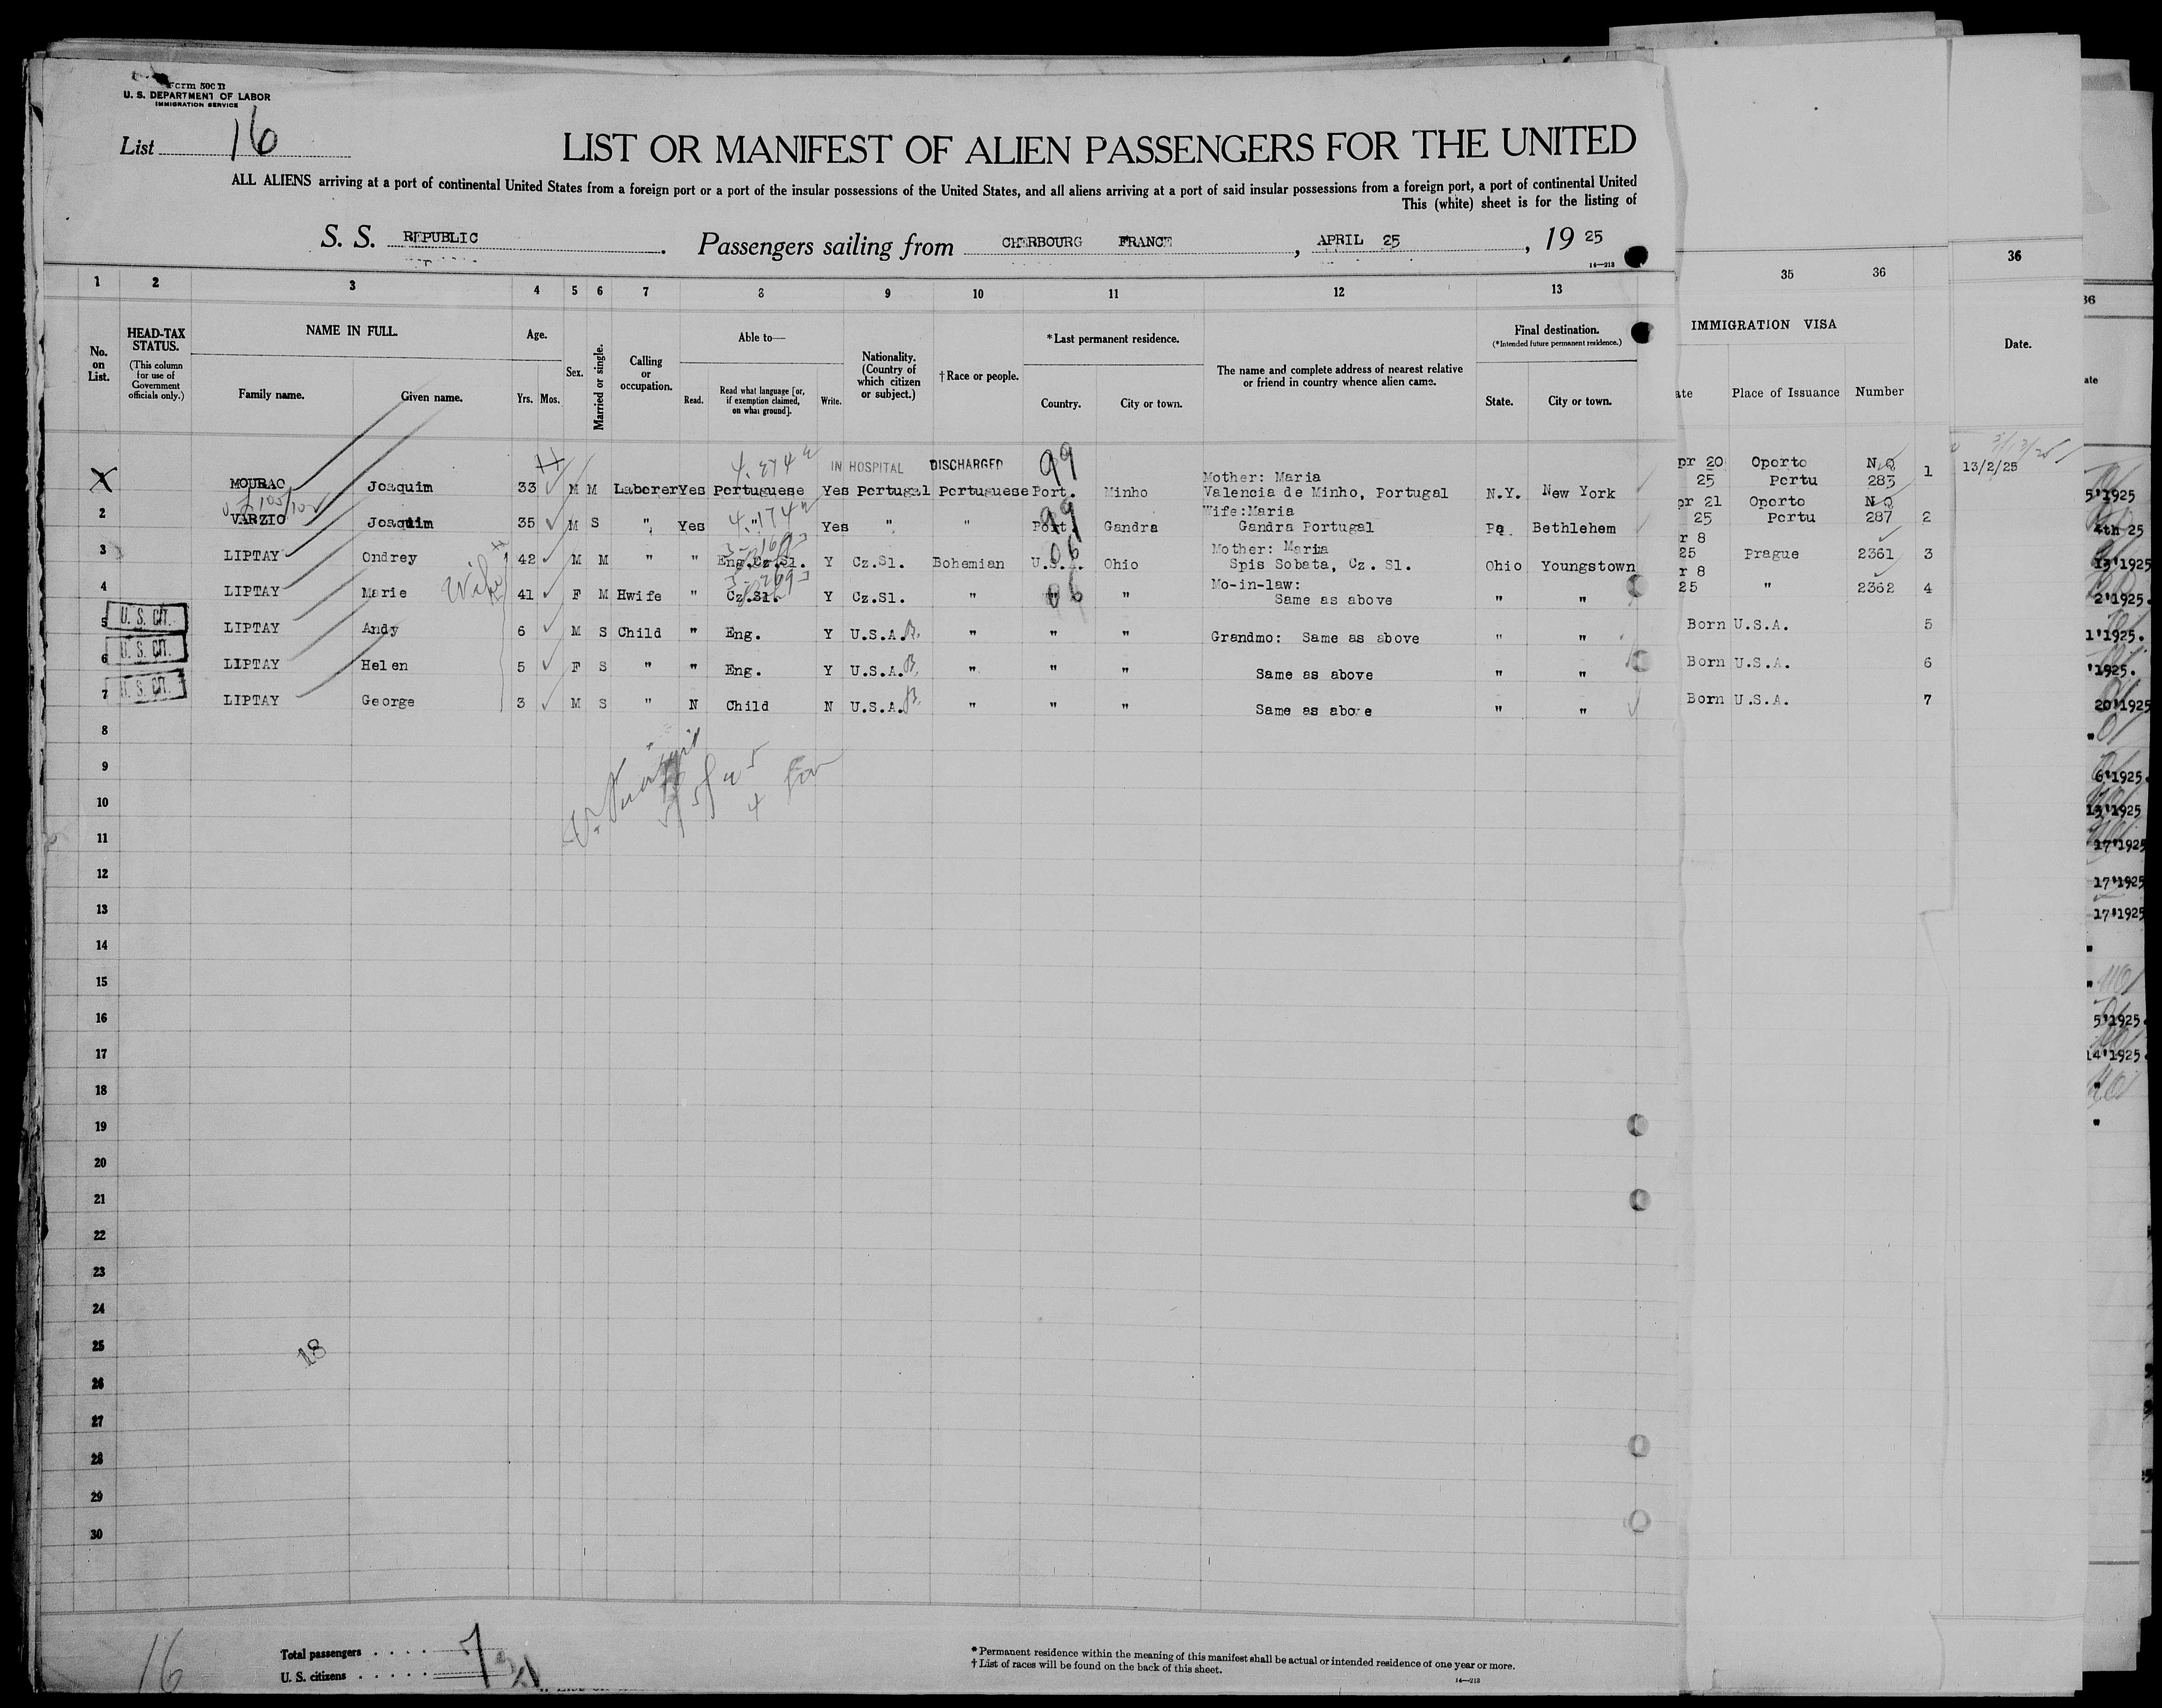 Form 500 B
U. S. DEPARTMENT OF LABOR
IMMIGRATION SERVICE
List 16
LIST OR MANIFEST OF ALIEN PASSENGERS FOR THE UNITED
ALL ALIENS arriving at a port of continental United States from a foreign port or a port of the insular possessions of the United States, and all aliens arriving at a port of said insular possessions from a foreign port, a port of continental United
This (white) sheet is for the listing of
S. S. REPUBLIC. Passengers sailing from CHERBOURG FRANCE, APRIL 25, 19 25
14—213
1 2 3 4 5 6 7 8 9 10 11 12 13 35 36 36
No. on List.
HEAD-TAX STATUS.
(This column for use of Government officials only.)
NAME IN FULL.
Family name. Given name.
Age.
Yrs. Mos.
Sex.
Married or single.
Calling or occupation.
Able to—
Read. Read what language [or, if exemption claimed, on what ground]. Write.
Nationality. (Country of which citizen or subject.)
†Race or people.
*Last permanent residence.
Country. City or town.
The name and complete address of nearest relative or friend in country whence alien came.
Final destination.
(*Intended future permanent residence.)
State. City or town.
IMMIGRATION VISA
ate Place of Issuance Number
Date.
IN HOSPITAL DISCHARGED 99
X MOURAO Joaquim 33 M M Laborer Yes Portuguese Yes Portugal Portuguese Port. Minho Mother: Maria Valencia de Minho, Portugal N.Y. New York pr 20 25 Oporto Portu N.Q 283 1 13/2/25
2 VARZIO Joaquim 35 M S " Yes " Yes " " Port Gandra Wife:Maria Gandra Portugal Pa Bethlehem pr 21 25 Oporto Portu N.Q 287 2
3 LIPTAY Ondrey 42 M M " " Eng.Cz.Sl. Y Cz.Sl. Bohemian U.S.A. Ohio Mother: Maria Spis Sobata, Cz. Sl. Ohio Youngstown r 8 25 Prague 2361 3
4 LIPTAY Marie Wife 41 F M Hwife " Cz.Sl. Y Cz.Sl. " " " Mo-in-law: Same as above " " r 8 25 " 2362 4
5 U. S. CIT. LIPTAY Andy 6 M S Child " Eng. Y U.S.A. B. " " " Grandmo: Same as above " " Born U.S.A. 5
6 U. S. CIT. LIPTAY Helen 5 F S " " Eng. Y U.S.A. B. " " " Same as above " " Born U.S.A. 6
7 U. S. CIT. LIPTAY George 3 M S " N Child N U.S.A. B. " " " Same as above " " Born U.S.A. 7
8
9
10
11
12
13
14
15
16
17
18
19
20
21
22
23
24
25
26
27
28
29
30
18
16
Total passengers . . . . 7
U. S. citizens . . . . .
* Permanent residence within the meaning of this manifest shall be actual or intended residence of one year or more.
† List of races will be found on the back of this sheet.
14—213
36
ate
5'1925
4th 25
13'1925
2'1925.
1'1925.
'1925.
20'1925
"
6'1925.
13'1925
17'1925
17'1925
17'1925
"
"
5'1925.
14'1925.
"
"